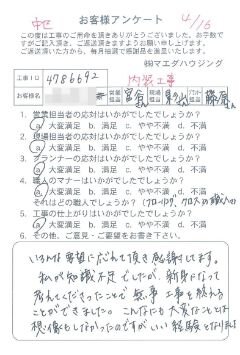 中区
お客様アンケート
4/16
この度は工事のご用命を頂きありがとうございました。お手数で
すがご記入頂き、ご返送頂きますようお願い申し上げます。
ご返送頂いた方から、毎月抽選で感謝品を進呈します。
㈱マエダハウジング
工事ID 4786692 内装工事
お客様名 営業担当 宮倉さん 現場担当 プランナー担当 藤原さん
1. 営業担当者の応対はいかがでしたでしょうか?
a 大変満足 b. 満足 c. やや不満 d. 不満
2. 現場担当者の応対はいかがでしたでしょうか?
a 大変満足 b. 満足 c. やや不満 d. 不満
3. プランナーの応対はいかがでしたでしょうか?
a 大変満足 b. 満足 c. やや不満 d. 不満
4. 職人のマナーはいかがでしたでしょうか?
a 大変満足 b. 満足 c. やや不満 d. 不満
それはどの職人でしょう?(フローリング、クロスの職人さん)
5. 工事の仕上がりはいかがでしたでしょうか?
a 大変満足 b. 満足 c. やや不満 d. 不満
6. その他、ご意見・ご要望をお書き下さい。
いろんな要望に応えて頂き感謝してます。
私が知識不足でしたが、親身になって
考えてくださったことで無事工事を終える
ことができました。こんなにも大変なことは
想像もしなかったのですがいい経験となりました